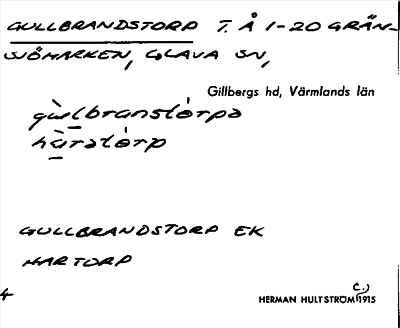 GULLBRANDSTORP T. Å 1-20 GRÄN-
SJÖMARKEN, GLAVA SN,
Gillbergs hd, Värmlands län
gùlbranstórpə
hàrətórp
GULLBRANDSTORP EK
HARTORP
4
HERMAN HULTSTRÖM (C.) 1915